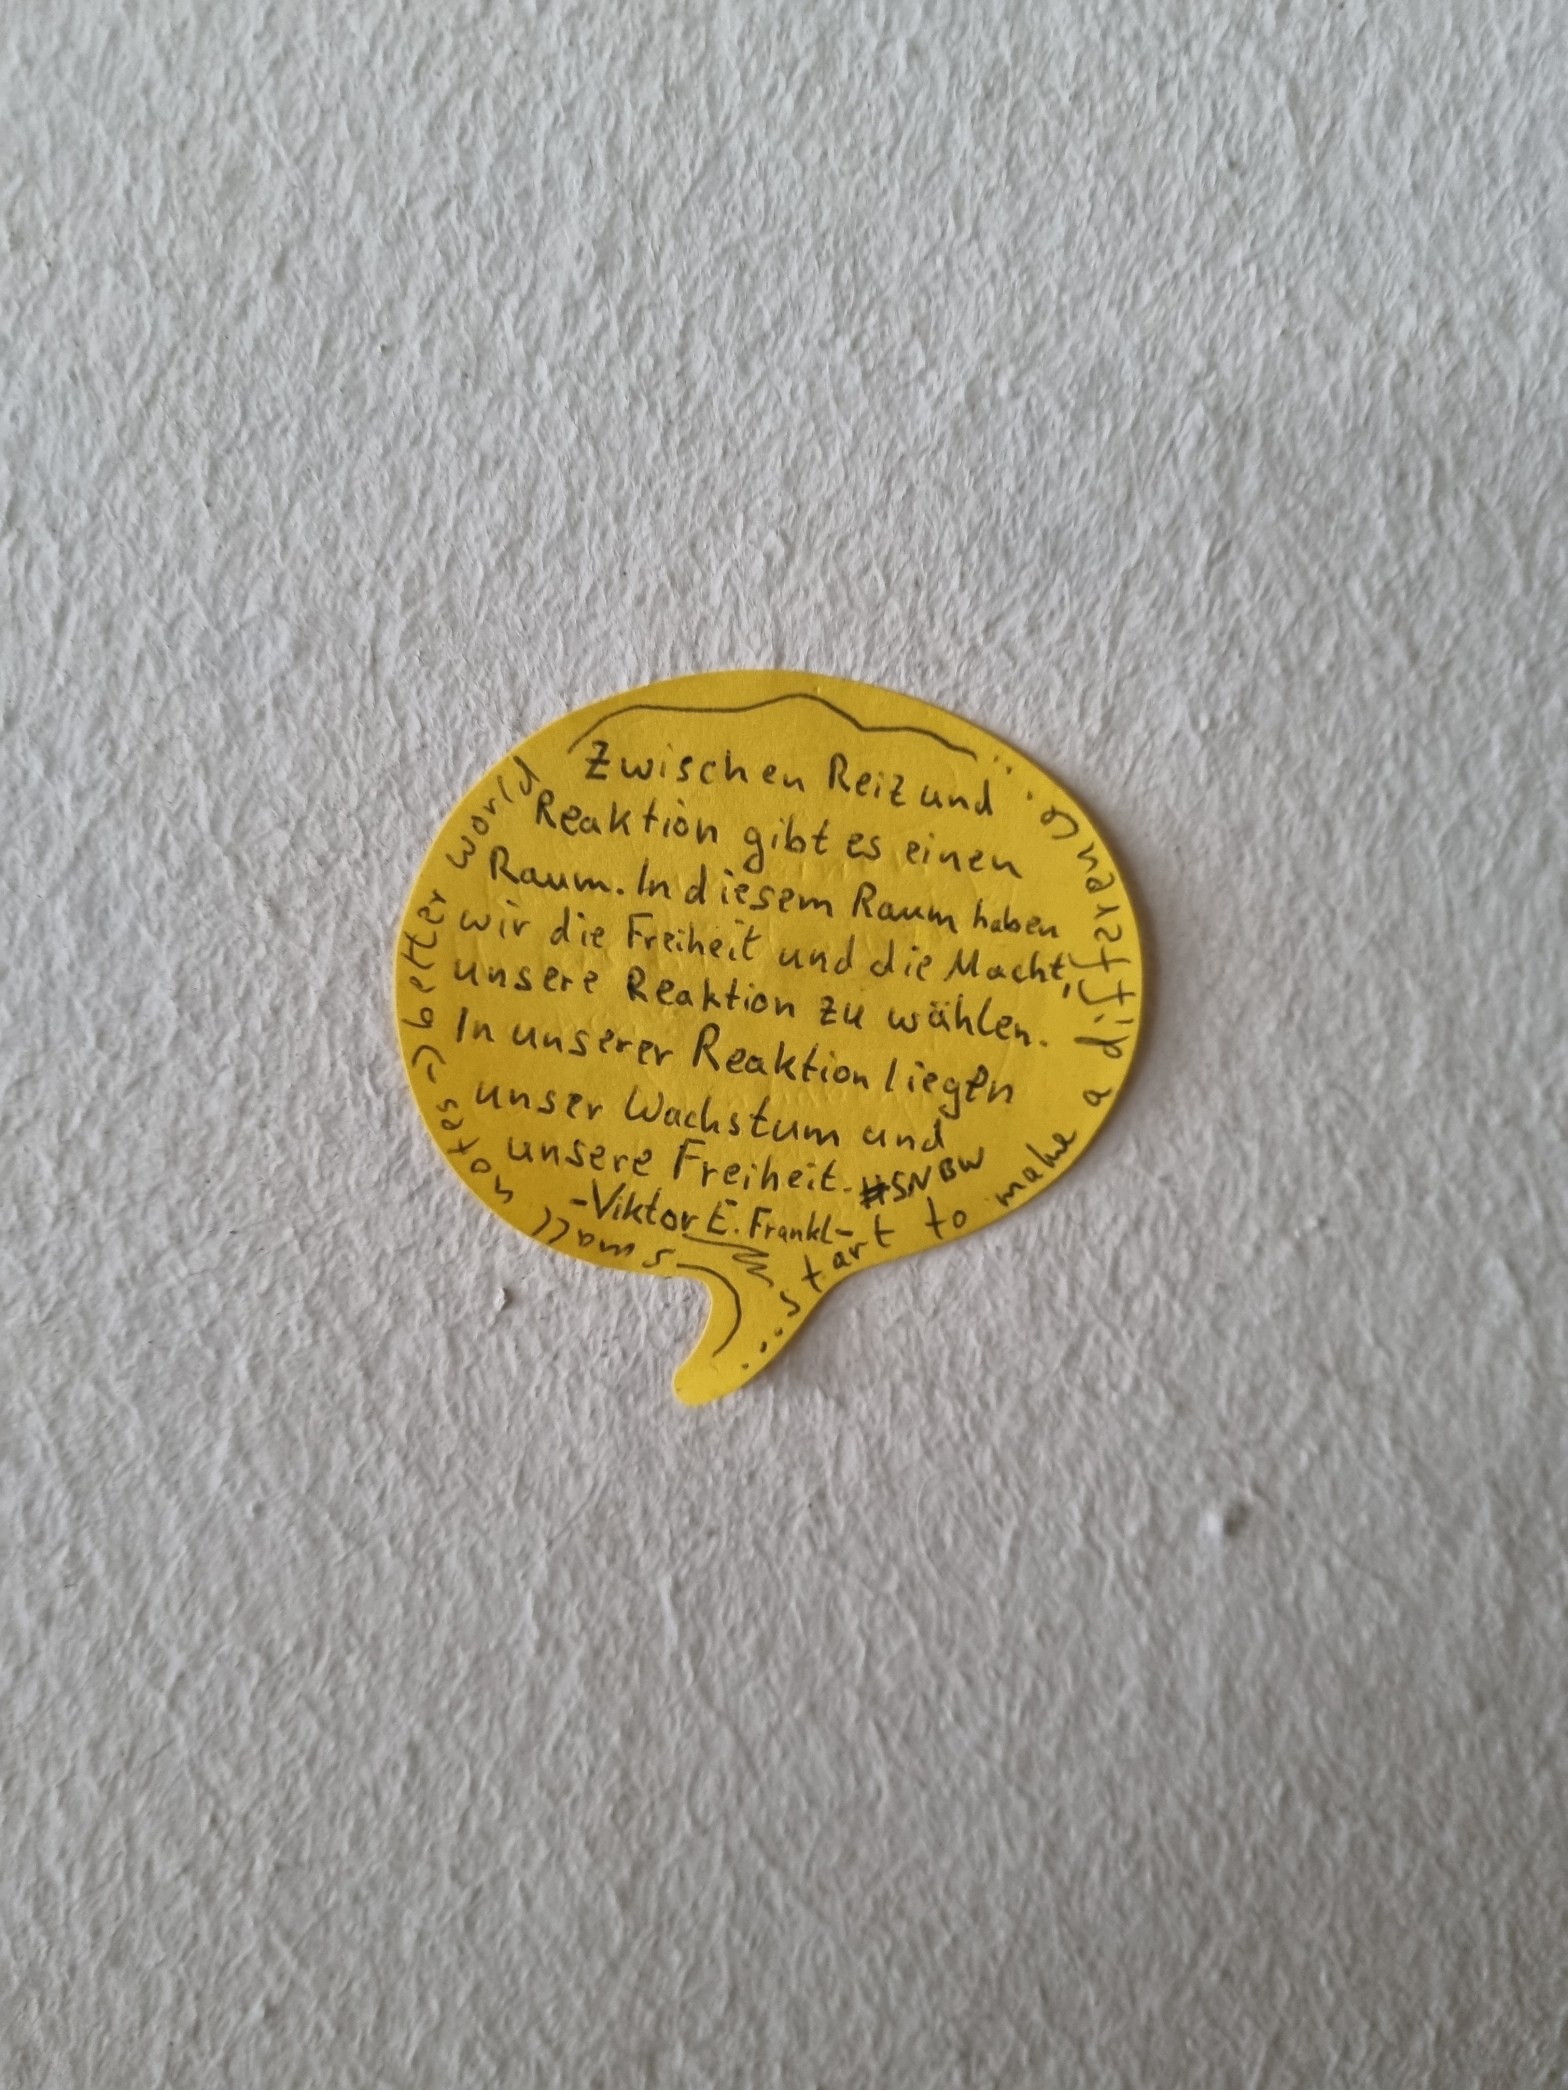 Zwischen Reiz und
Reaktion gibt es einen
Raum. In diesem Raum haben
wir die Freiheit und die Macht,
unsere Reaktion zu wählen.
In unserer Reaktion liegen
unser Wachstum und
unsere Freiheit.
#SNBW
-Viktor E. Frankl-
small notes -> better world
...start to make a